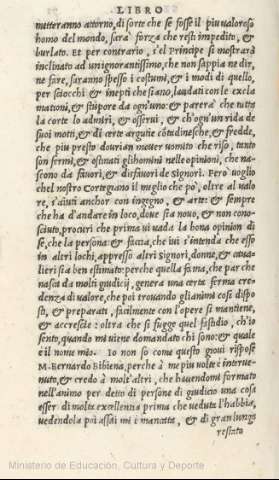 LIBRO
metteranno attorno, di sorte che se fosse il piu valoroso
homo del mondo, sarà forza che resti impedito, &
burlato. Et per contrario, s'el Principe si mostrarà
inclinato ad un ignorantissimo, che non sappia ne dir,
ne fare, saranno spesso i costumi, & i modi di quello,
per sciocchi & inepti che siano, laudati con le excla
mationi, & stupore da ogn'uno: & parerà che tutta
la corte lo admiri, & osservi, & ch'ogn'un rida de
suoi motti, & di certe argutie cõtadinesche, & fredde,
che piu presto dovrian mover vomito che riso, tanto
son fermi, & ostinati gli homini nelle opinioni, che na-
scono da favori, & disfavori de signori. Però voglio
ch'el nostro Cortegiano il meglio che pò, oltre al valo
re, s'aiuti anchor con ingegno, & arte: & sempre
che hà d'andare in loco, dove sia novo, & non cono-
sciuto, procuri che prima vi vada la bona opinion di
se, che la persona: & faccia, che ivi s'intenda che esso
in altri lochi, appresso altri signori, donne, & cava-
lieri sia ben estimato: perche quella fama, che par che
nasca da molti giudicij, genera una certa ferma cre-
denza di valore, che poi trovando gli animi così dispo
sti, & preparati, facilmente con l'opere si mantiene,
& accresce: oltra che si fugge quel fastidio, ch'io
sento, quando mi viene domandato chi sono: & quale
è il nome mio. Io non so come questo giovi rispose
M. Bernardo Bibiena, perche à me piu volte è interve-
nuto, & credo à molt'altri, che havendomi formato
nell'animo per detto di persone di giudicio una cosa
esser di molta excellentia prima che veduta l'habbia,
vedendola poi assai mi è mancata, & di gran lunga
restato
Ministerio de Educación, Cultura y Deporte